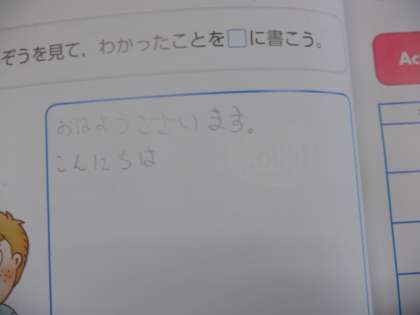 ぞうを見て，わかったことを□に書こう。
Ac
おはようございます。
こんにちは